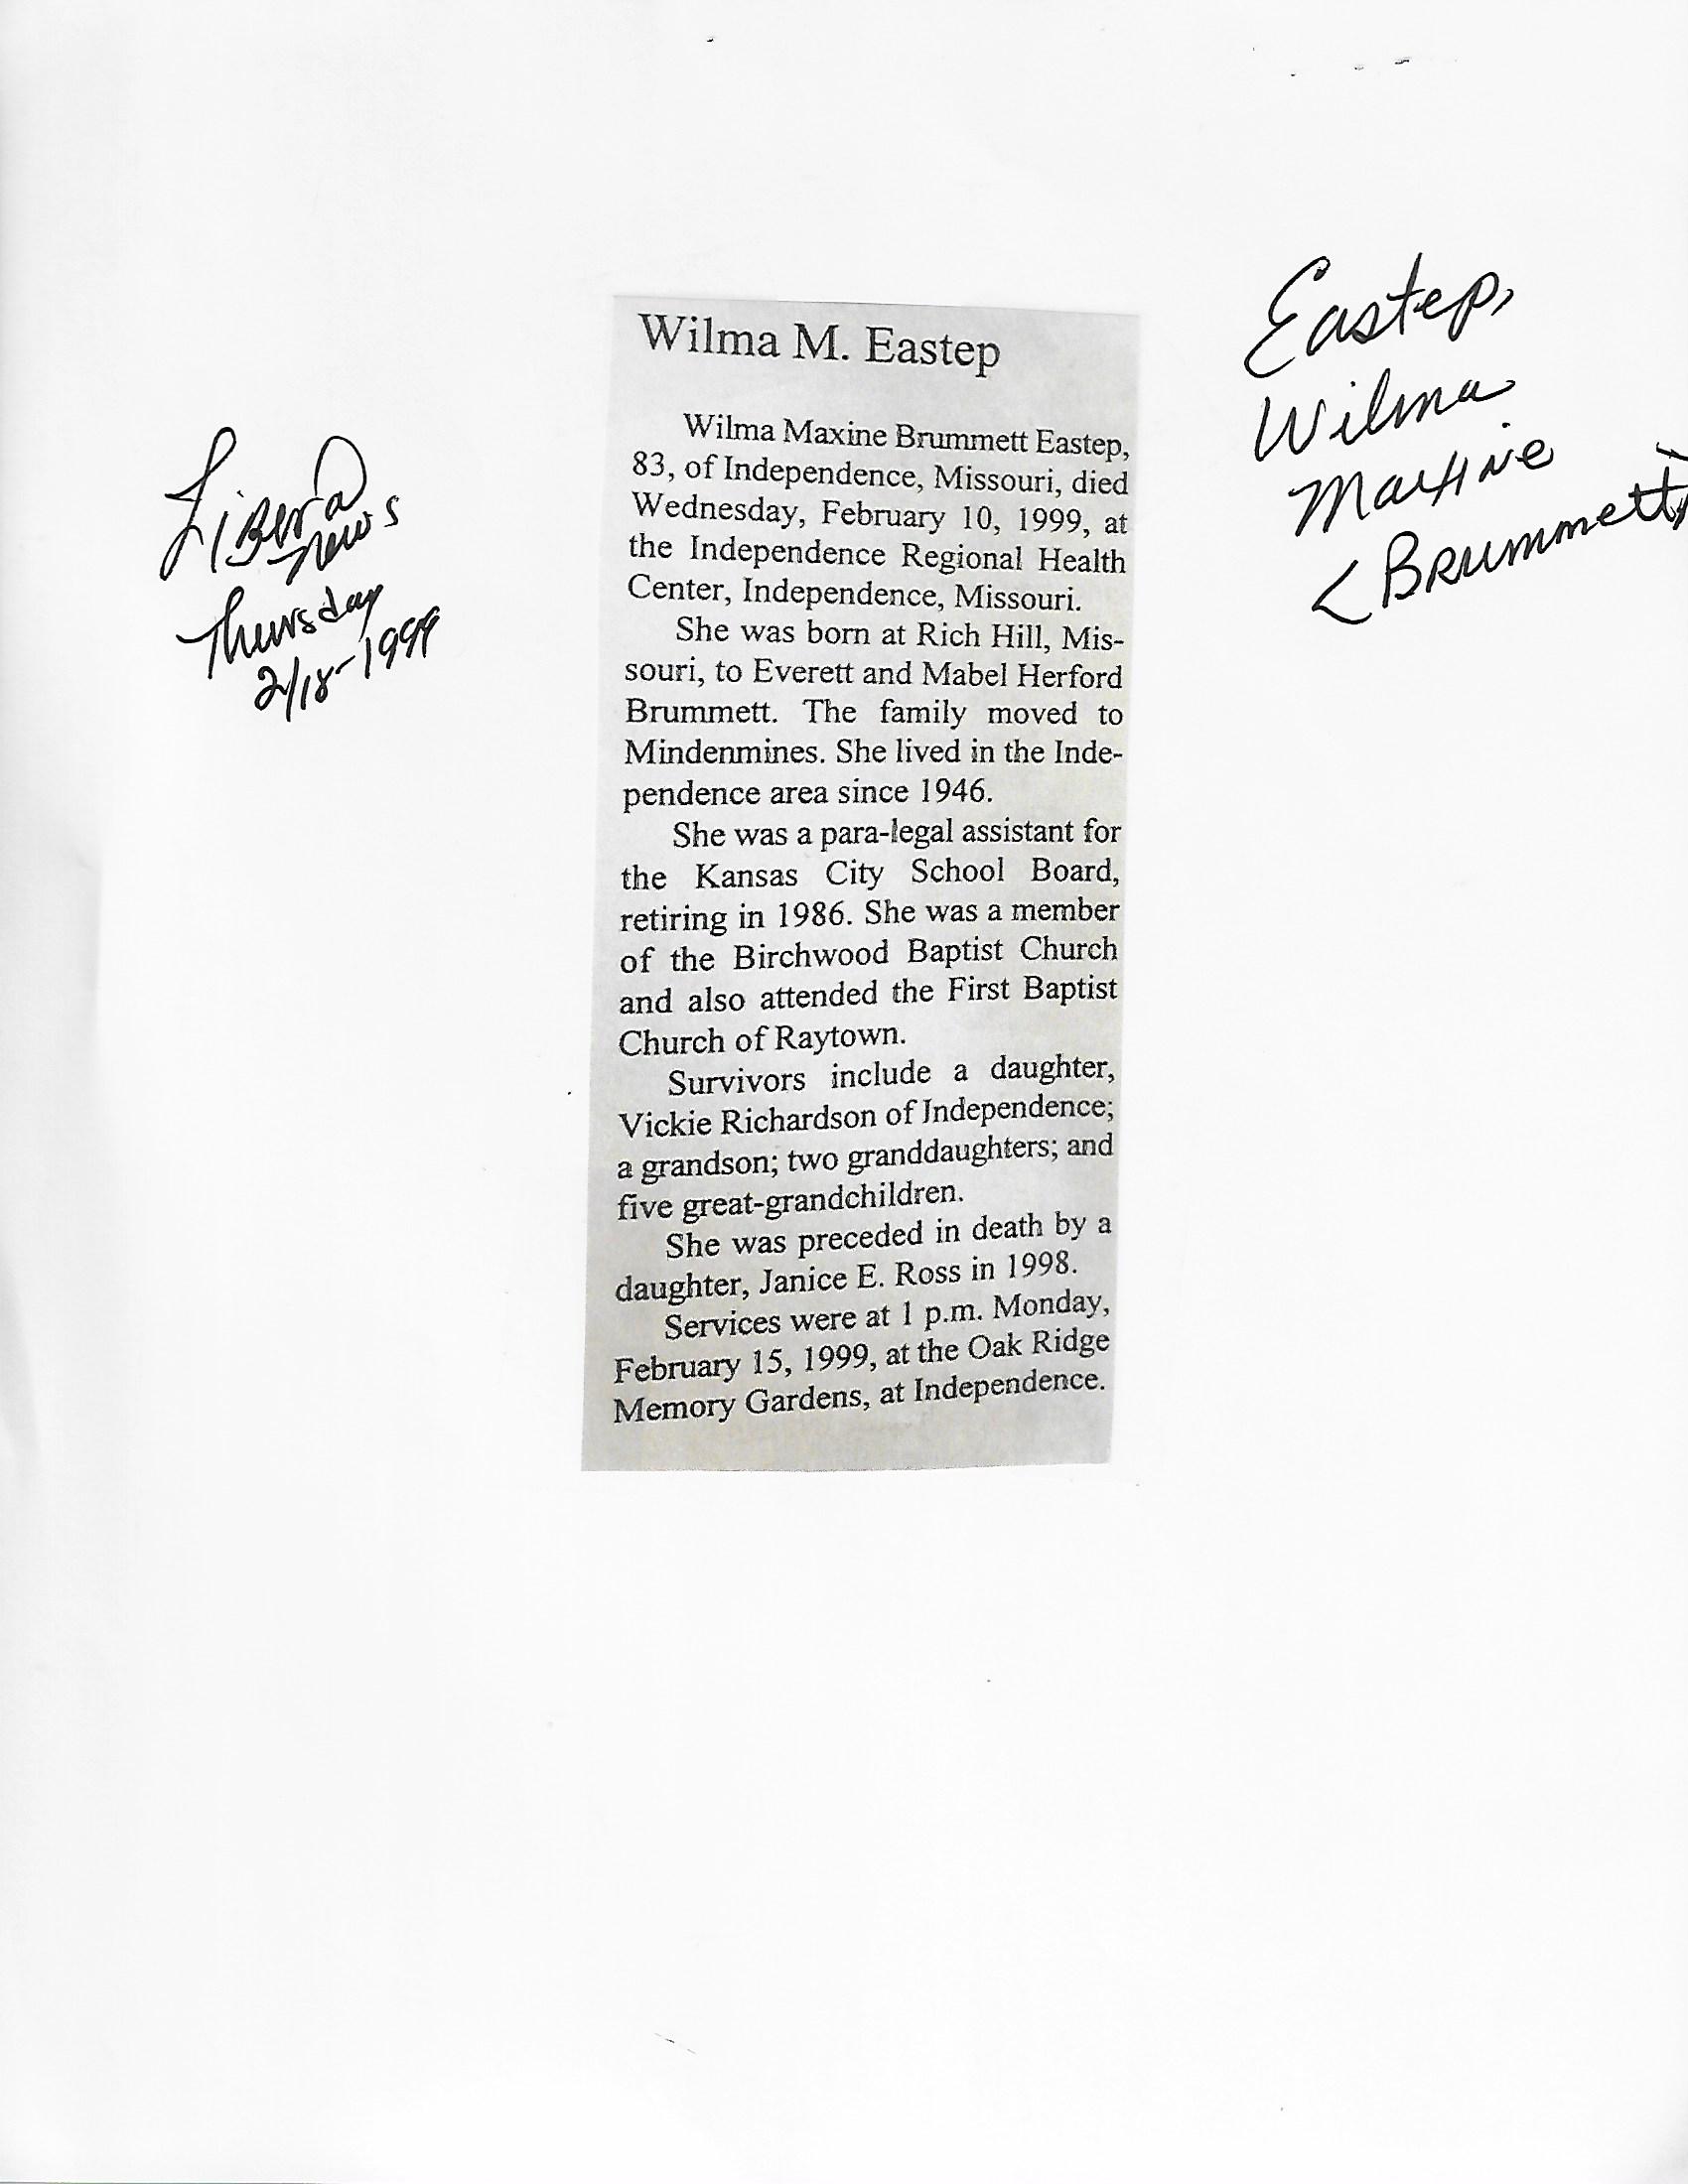 Liberal
News
Thursday
2/18-1999
Wilma M. Eastep
Wilma Maxine Brummett Eastep,
83, of Independence, Missouri, died
Wednesday, February 10, 1999, at
the Independence Regional Health
Center, Independence, Missouri.
She was born at Rich Hill, Mis-
souri, to Everett and Mabel Herford
Brummett. The family moved to
Mindenmines. She lived in the Inde-
pendence area since 1946.
She was a para-legal assistant for
the Kansas City School Board,
retiring in 1986. She was a member
of the Birchwood Baptist Church
and also attended the First Baptist
Church of Raytown.
Survivors include a daughter,
Vickie Richardson of Independence;
a grandson; two granddaughters; and
five great-grandchildren.
She was preceded in death by a
daughter, Janice E. Ross in 1998.
Services were at 1 p.m. Monday,
February 15, 1999, at the Oak Ridge
Memory Gardens, at Independence.
Eastep,
Wilma
Maxine
(Brummett)